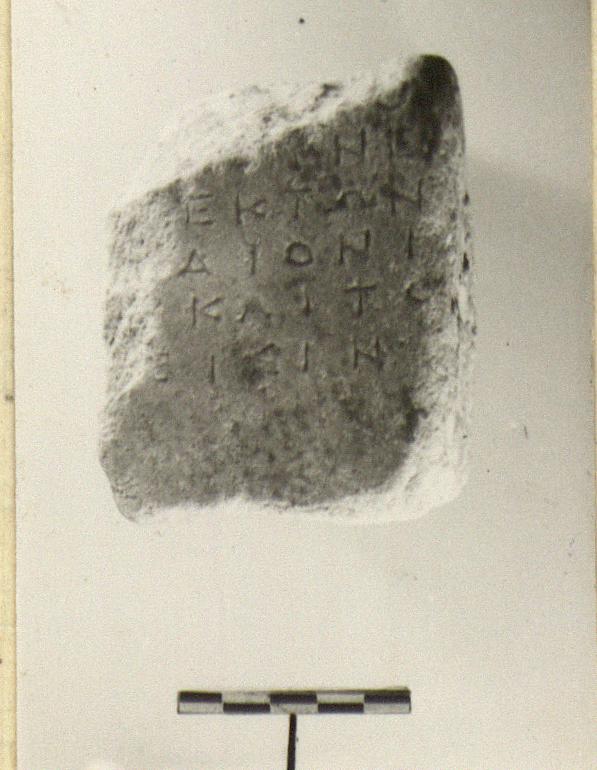 ΝΕ
ΕΚΤΩΝ
ΔΙΟΝΙ
ΚΑΙΤΟ
ΕΙΣΙΝ